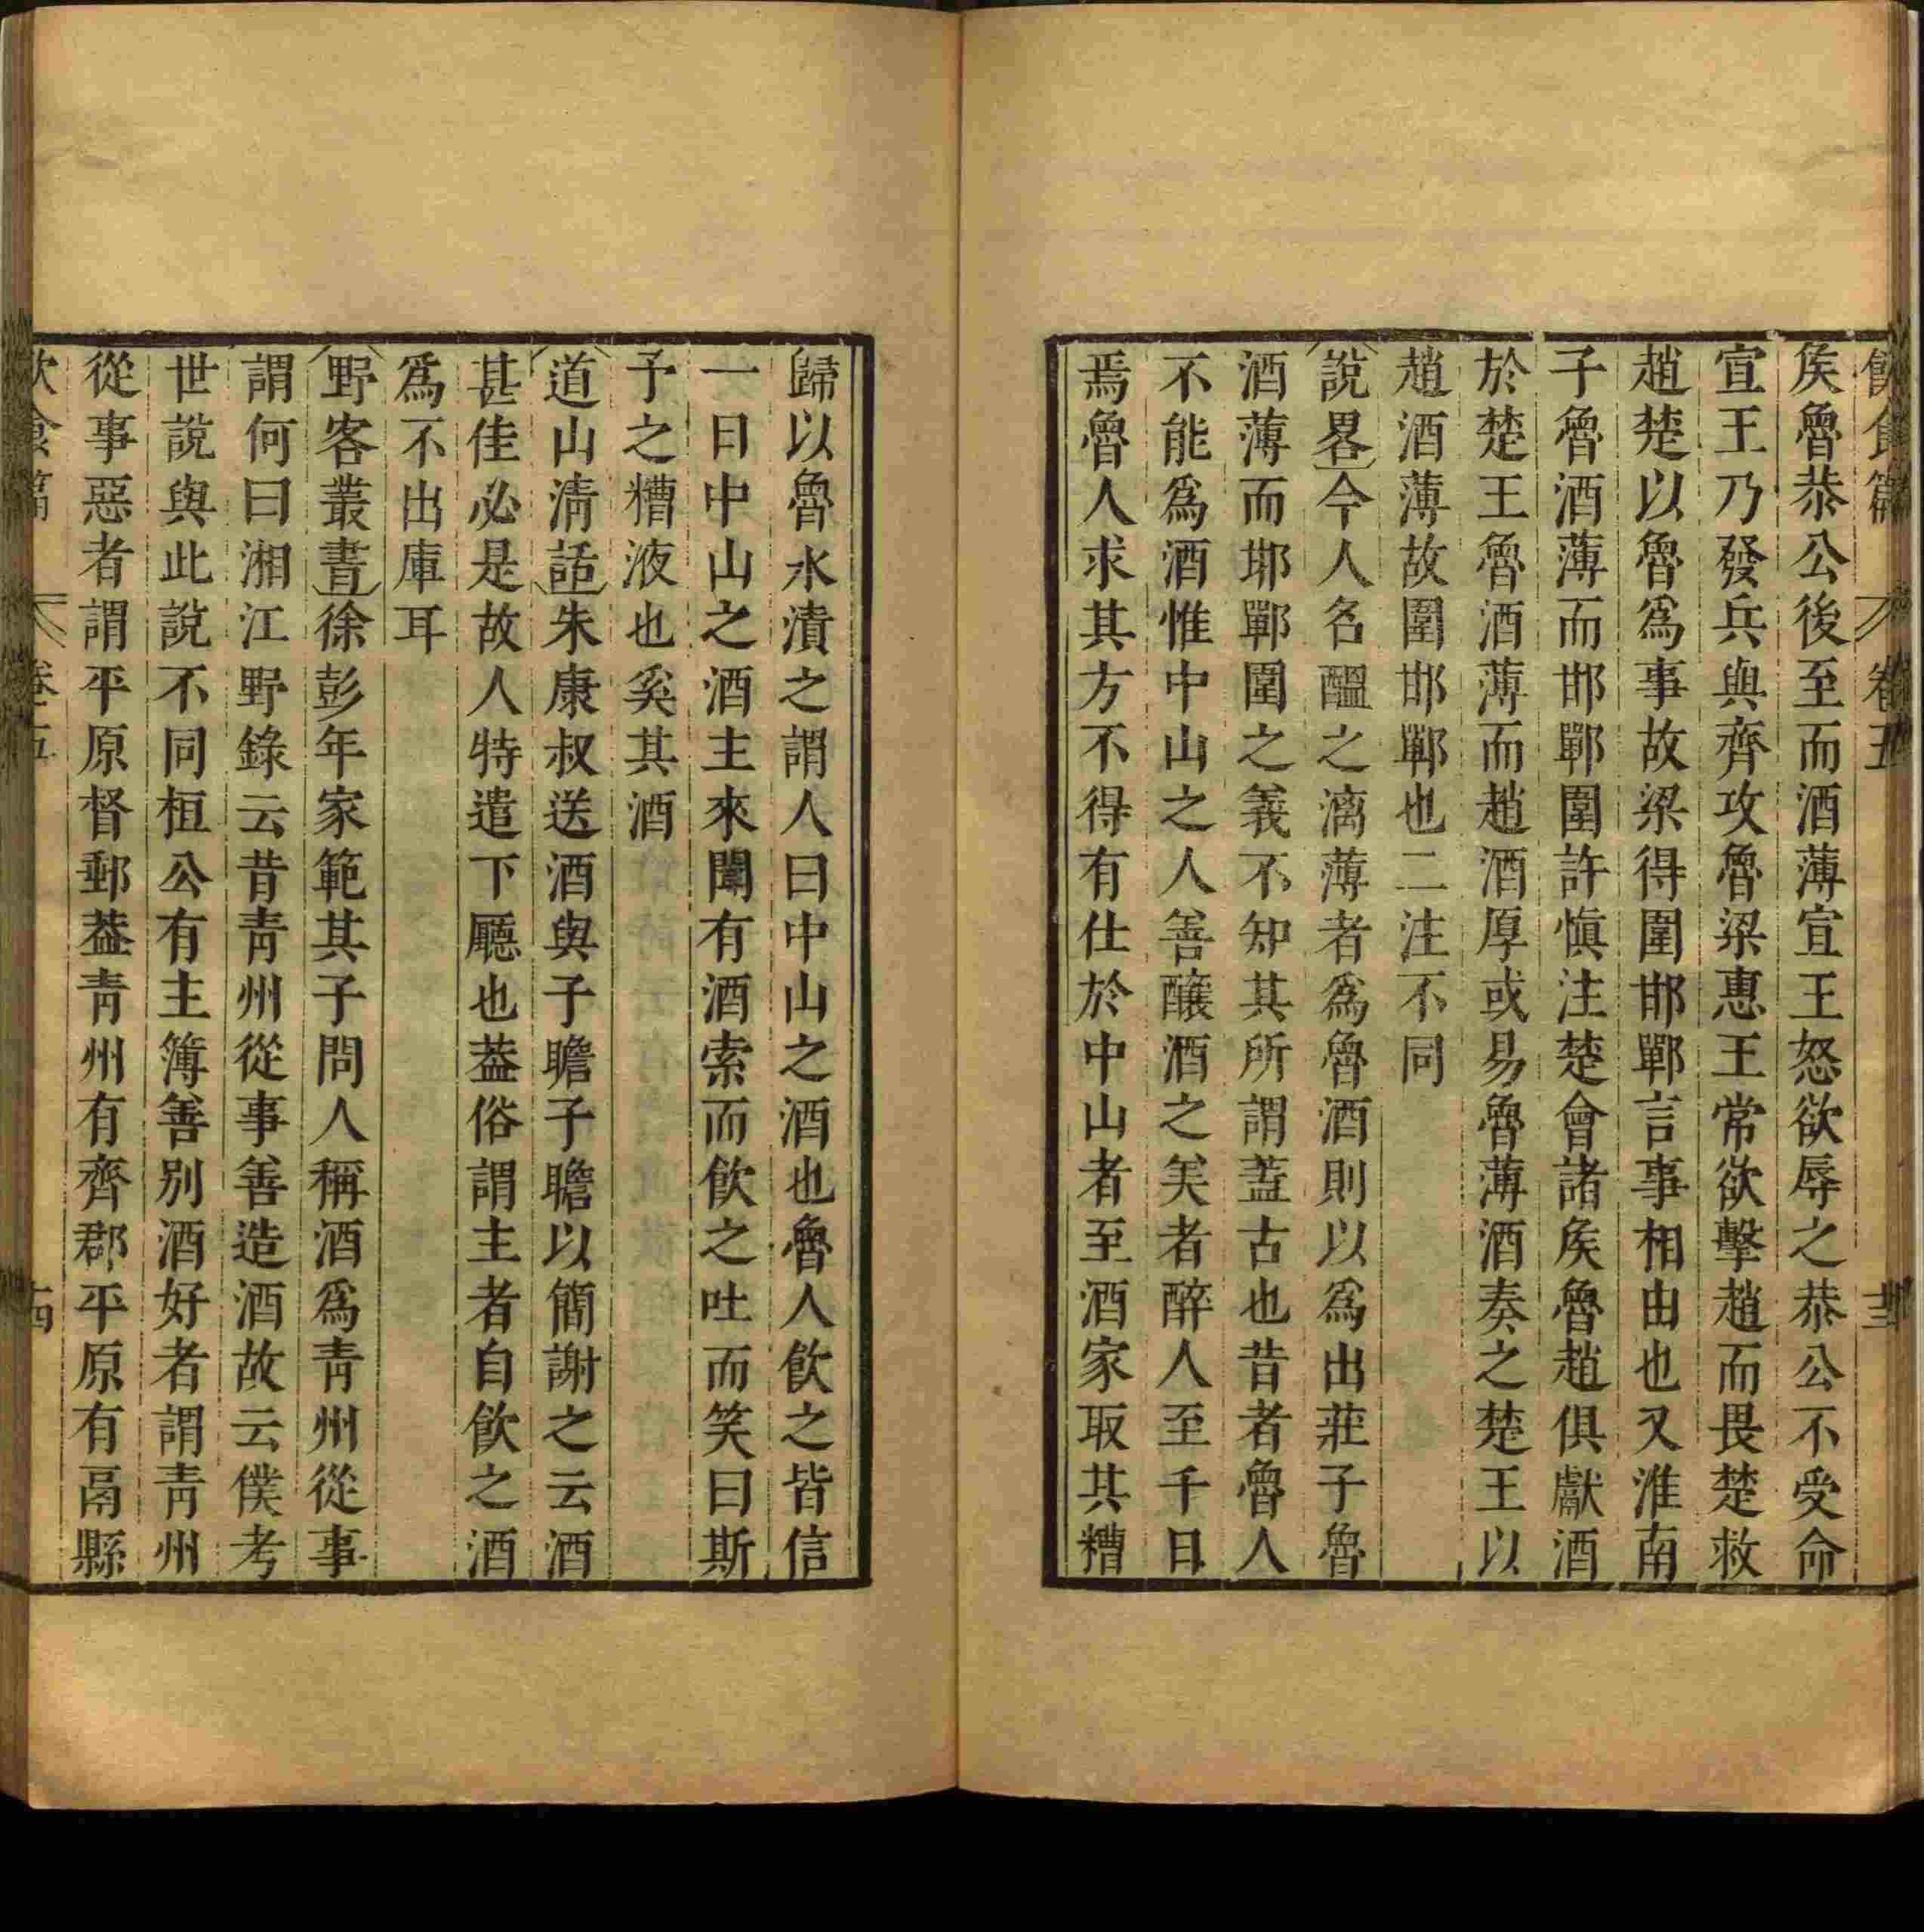 飲食篇 卷五 十三
矦魯恭公後至而酒薄宣王怒欲辱之恭公不受命
宣王乃發兵與齊攻魯梁惠王常欲擊趙而畏楚救
趙楚以魯爲事故梁得圍邯鄲言事相由也又淮南
子魯酒薄而邯鄲圍許愼注楚會諸矦魯趙俱獻酒
於楚王魯酒薄而趙酒厚或易魯薄酒奏之楚王以
趙酒薄故圍邯鄲也二注不同
說畧今人名醞之漓薄者爲魯酒則以爲出莊子魯
酒薄而邯鄲圍之義不知其所謂葢古也昔者魯人
不能爲酒惟中山之人善釀酒之美者醉人至千日
焉魯人求其方不得有仕於中山者至酒家取其糟
歸以魯水漬之謂人曰中山之酒也魯人飲之皆信
一日中山之酒主來聞有酒索而飲之吐而笑曰斯
予之糟液也奚其酒
道山淸話朱康叔送酒與子瞻子瞻以簡謝之云酒
甚佳必是故人特遣下廳也葢俗謂主者自飲之酒
爲不出庫耳
野客叢書徐彭年家範其子問人稱酒爲靑州從事
謂何曰湘江野錄云昔靑州從事善造酒故云僕考
世說與此說不同桓公有主簿善別酒好者謂靑州
從事惡者謂平原督郵葢靑州有齊郡平原有鬲縣
飲食篇 卷五 十四